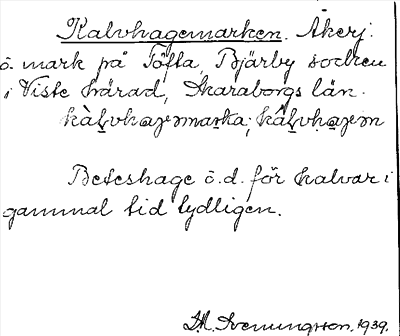 Kalvhagemarken. Åkerj.
o. mark på Töfta, Bjärby socken
i Viste härad, Skaraborgs län.
kàlvhagemarka; kâlvhagem
Beteshage o. d. för kalvar i
gammal tid tydligen.
Svenungsson. 1939.